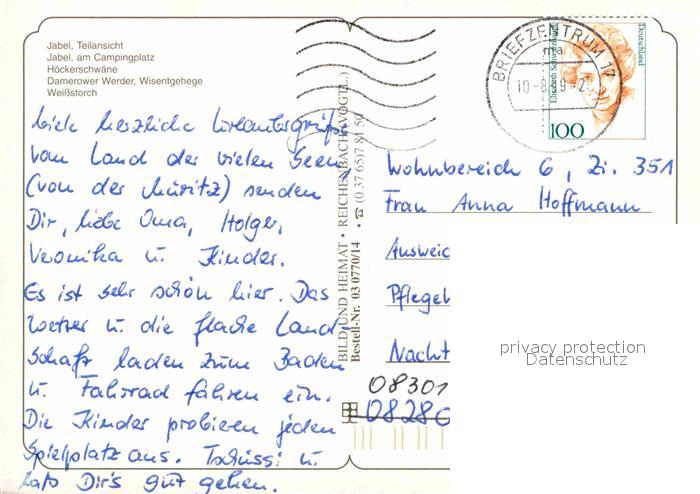 Jabel, Teilansicht
Jabel, am Campingplatz
Höckerschwäne
Damerower Werder, Wisentgehege
Weißstorch
Viele herzliche Urlaubsgrüße
vom Land der vielen Seen
(von der Müritz) senden
Dir, liebe Oma, Holger,
Veronika u. Kinder.
Es ist sehr schön hier. Das
Wetter u. die flache Land-
schaft laden zum Baden
u. Fahrrad fahren ein.
Die Kinder probieren jeden
Spielplatz aus. Tschüssi u.
laß Dir's gut gehen.
BILD UND HEIMAT • REICHENBACH (VOGTL.)
Bestell-Nr. 03 0770/14 • ☎ (0 37 65) 7 81 50
BRIEFZENTRUM 17
ma
Elisabeth Schwarzhaupt
Deutschland
100
Wohnbereich 6, Zi. 351
Frau Anna Hoffmann
Ausweic
Pflege
Nacht
08301
08280
privacy protection
Datenschutz